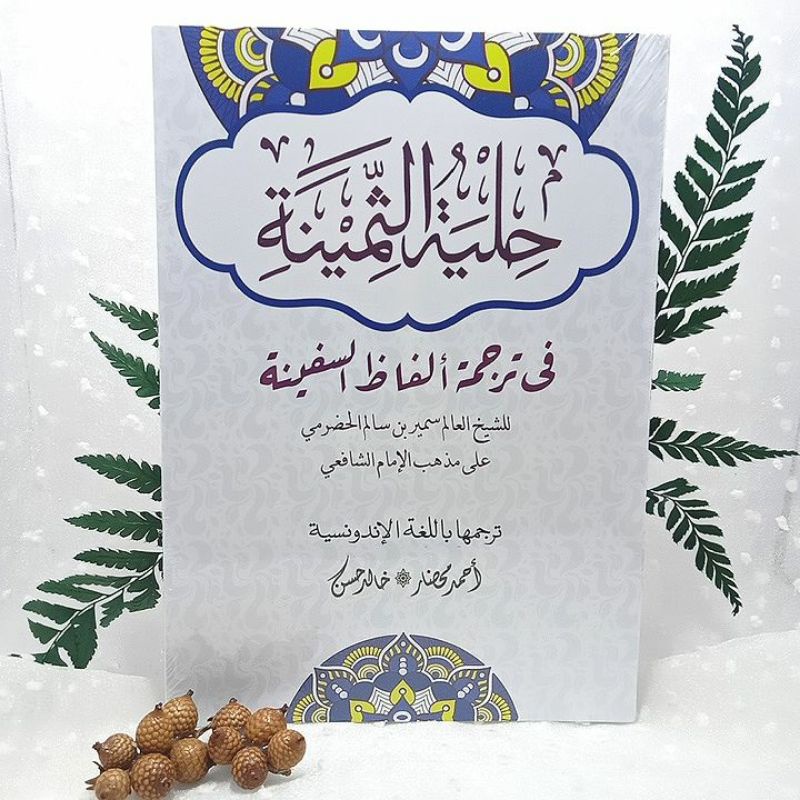 حِلْيَةُ الثَّمِيْنَةِ
في ترجمة ألفاظ السفينة
للشيخ العالم سمير بن سالم الحضرمي
على مذهب الإمام الشافعي
ترجمها باللغة الإندونسية
أحمد محضار خالد حسن